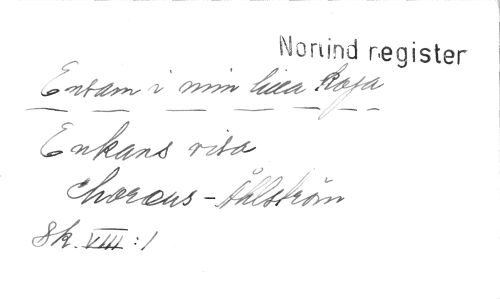 Norlind register
Ensam i min lilla koja
Enkans visa
Choraeus - Åhlström
Sk. VIII : 1